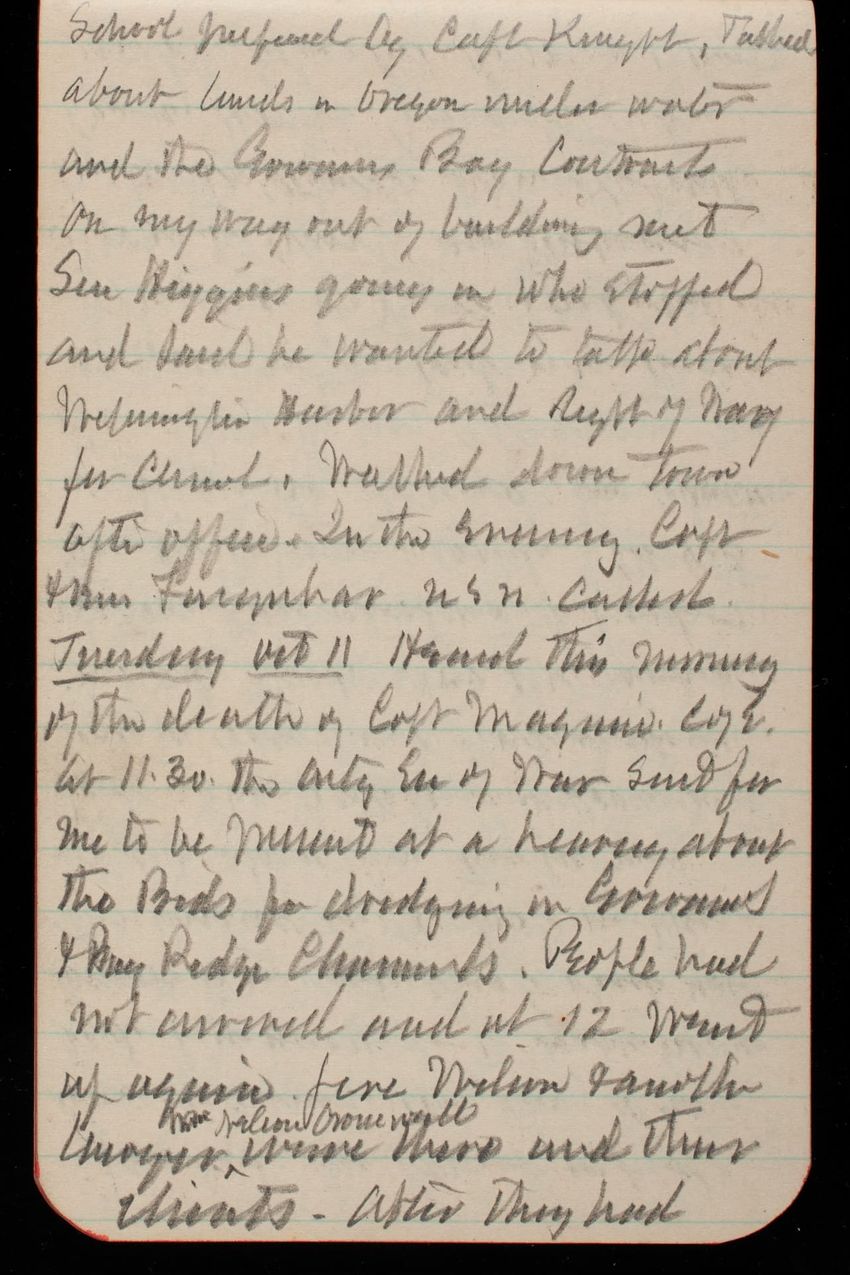 School prepared by Capt Knight, Talked
about lands in Oregon under water
and the Gowanus Bay Contracts
On my way out of building met
Sen Higgins going in who stopped
and said he wanted to talk about
Wilmington Harbor and Right of Way
for Canal. Walked down town
after office. In the Evening. Capt
& Mrs Farquhar U S N. Called.
Tuesday Oct 11 Heard this morning
of the death of Capt Maguire. Capt.
At 11.30. the Actg Sec of War sent for
me to be present at a hearing about
the Bids for dredging in Gowanus
& Bay Ridge Channels. People had
not arrived and at 12 Went
up again. Wilson & another
lawyer were there and their
Wm Nelson Cromwell
clients - After they had